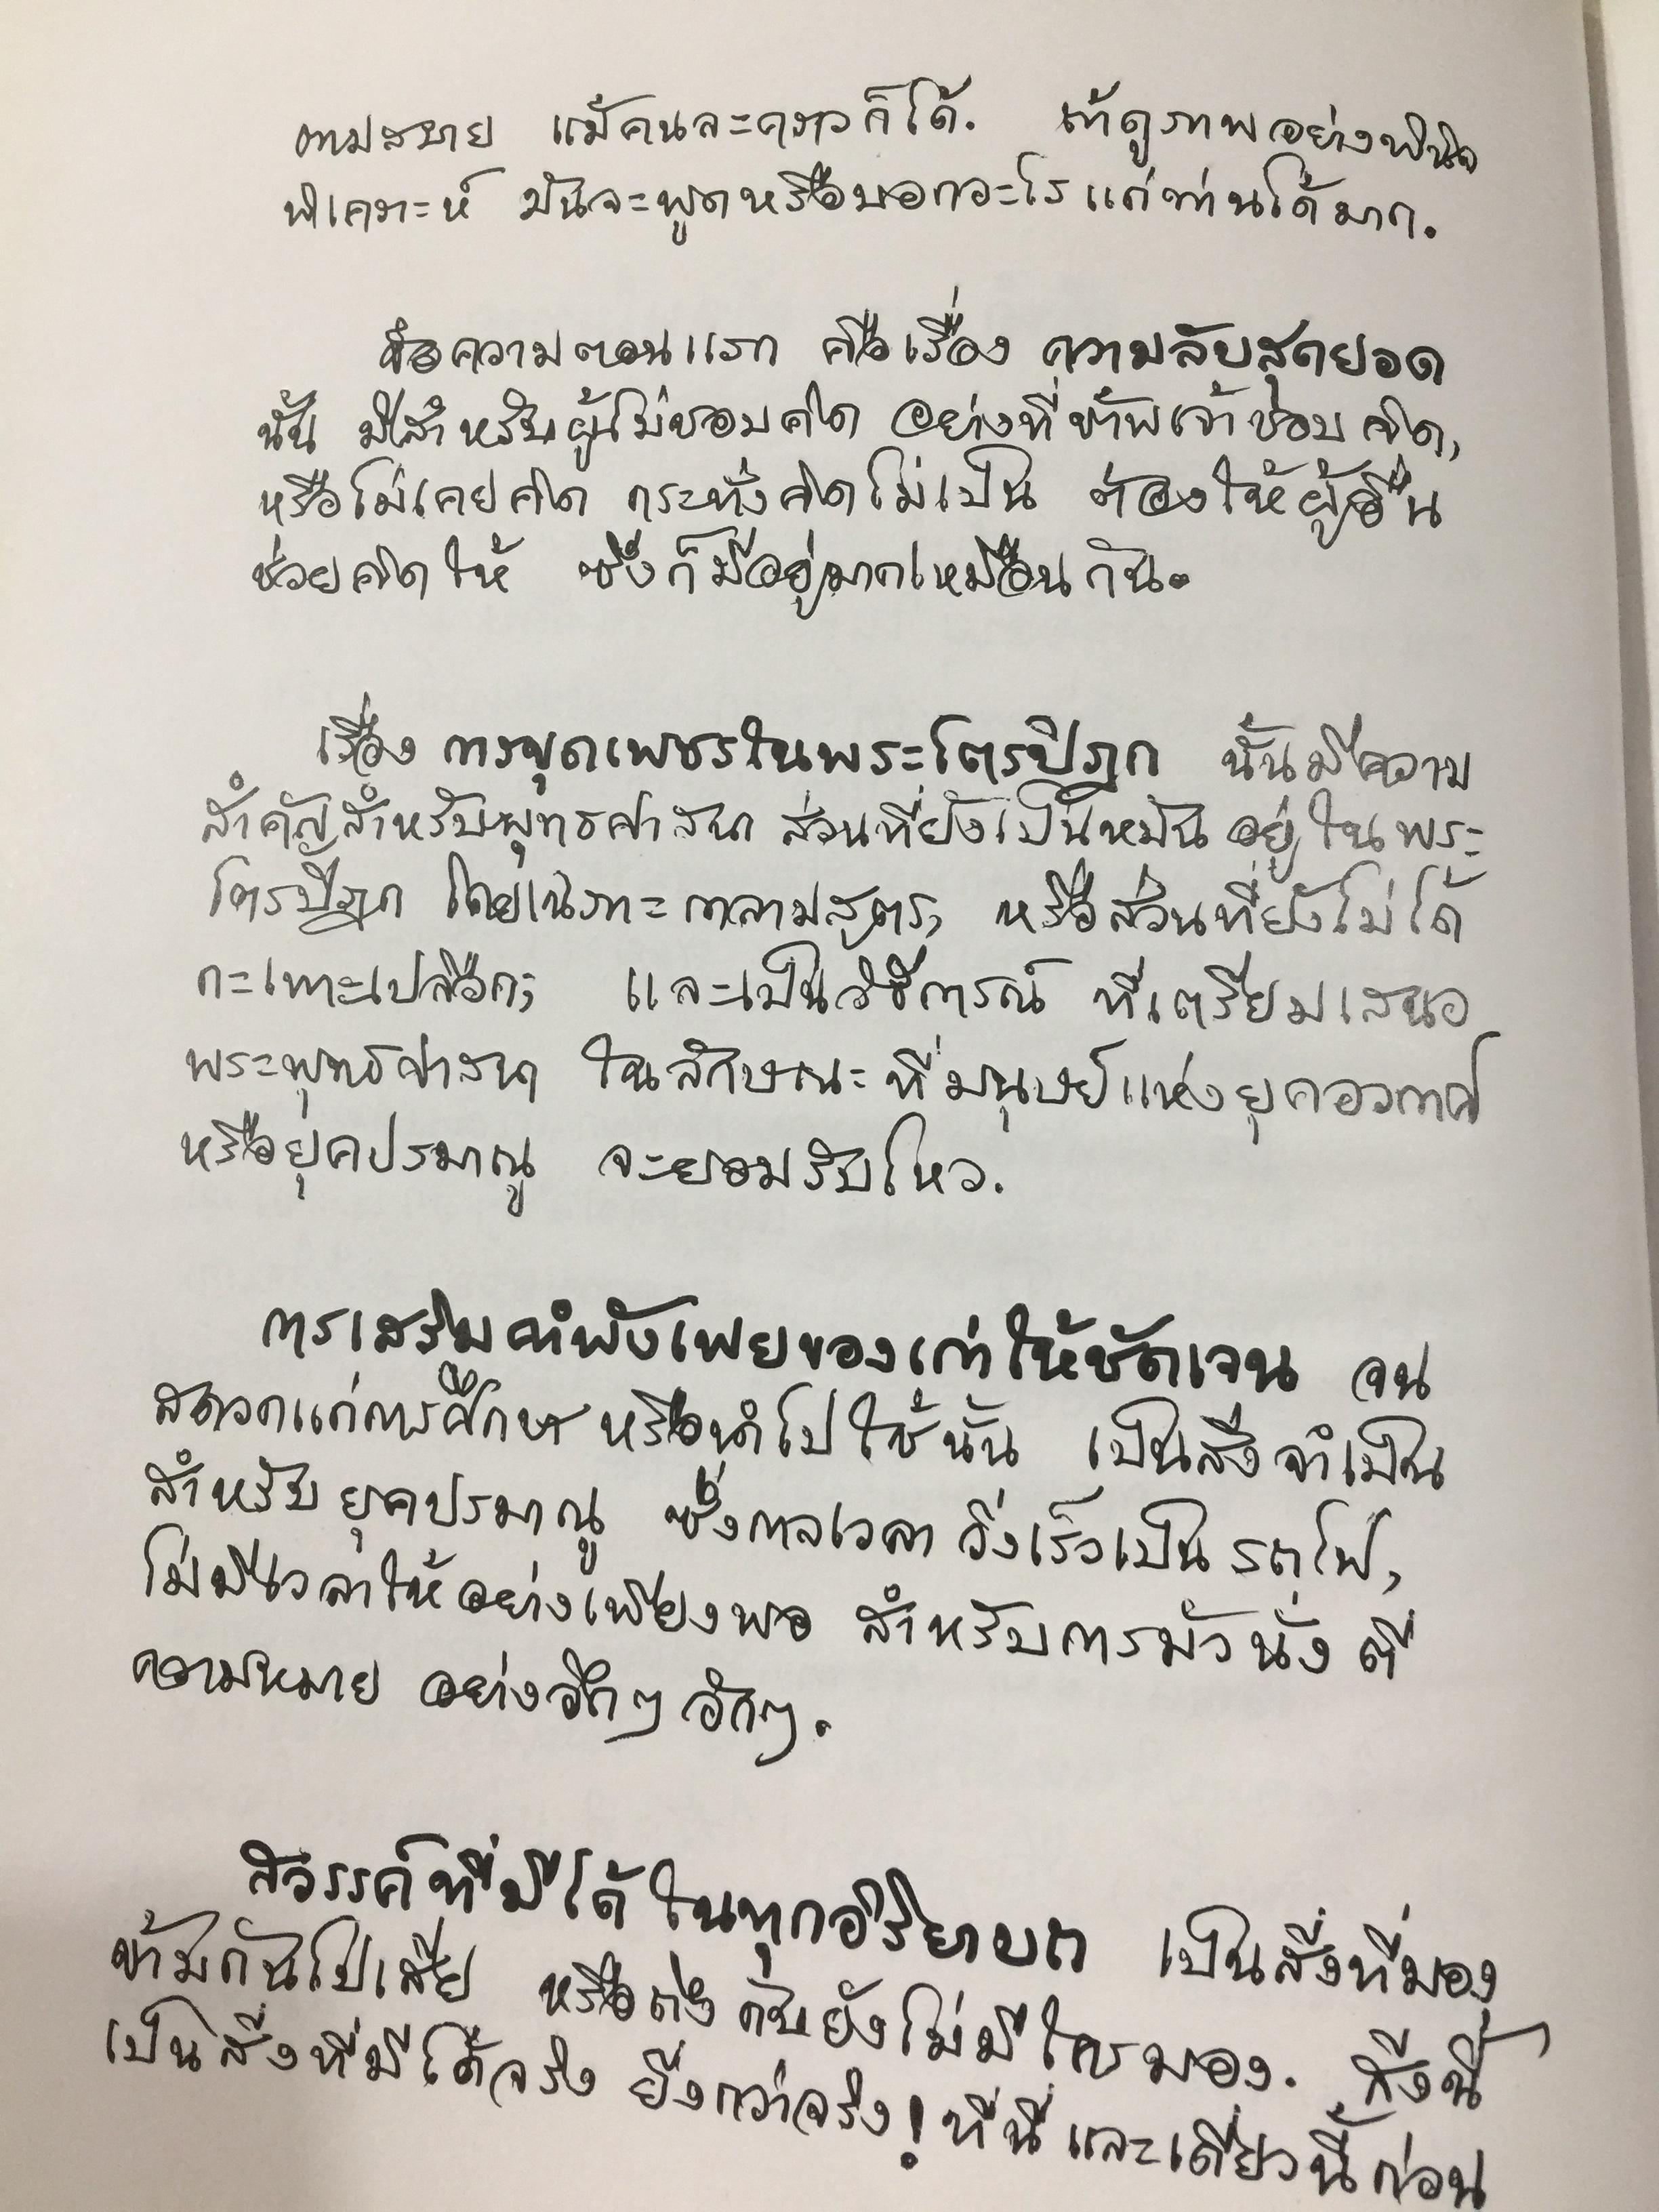 ตามสบาย แม้คนละคราวก็ได้. ถ้าดูภาพอย่างพินิจ
พิเคราะห์ มันจะพูดหรือบอกอะไรแก่ท่านได้มาก.
ข้อความตอนแรก คือเรื่อง ความลับสุดยอด
นั้น มีสำหรับผู้ไม่ชอบคิด อย่างที่ข้าพเจ้าชอบคิด,
หรือไม่เคยคิด กระทั่งคิดไม่เป็น ต้องให้ผู้อื่น
ช่วยคิดให้ ซึ่งก็มีอยู่มากเหมือนกัน.
เรื่อง การขุดเพชรในพระไตรปิฎก นั้นมีความ
สำคัญสำหรับพุทธศาสนา ส่วนที่ยังเป็นหมันอยู่ในพระ
ไตรปิฎก โดยเฉพาะกาลามสูตร, หรือส่วนที่ยังไม่ได้
กะเทาะเปลือก; และเป็นวิธีการณ์ ที่เตรียมเสนอ
พระพุทธศาสนา ในลักษณะที่มนุษย์แห่งยุคอวกาศ
หรือยุคปรมาณู จะยอมรับไหว.
การเสริมคำพังเพยของเก่าให้ชัดเจน จน
สะดวกแก่การศึกษา หรือนำไปใช้นั้น เป็นสิ่งจำเป็น
สำหรับยุคปรมาณู ซึ่งกาลเวลา วิ่งเร็วเป็นรถไฟ,
ไม่มีเวลาให้อย่างเพียงพอ สำหรับการมัวนั่งตี
ความหมาย อย่างอึกๆ อักๆ.
สวรรค์ที่มีได้ ในทุกอิริยาบถ เป็นสิ่งที่มอง
ข้ามกันไปเสีย หรือถึงกับยังไม่มีใครมอง. สิ่งนี้
เป็นสิ่งที่มีได้จริง ยิ่งกว่าจริง! ที่นี่ และเดี๋ยวนี้ก่อน